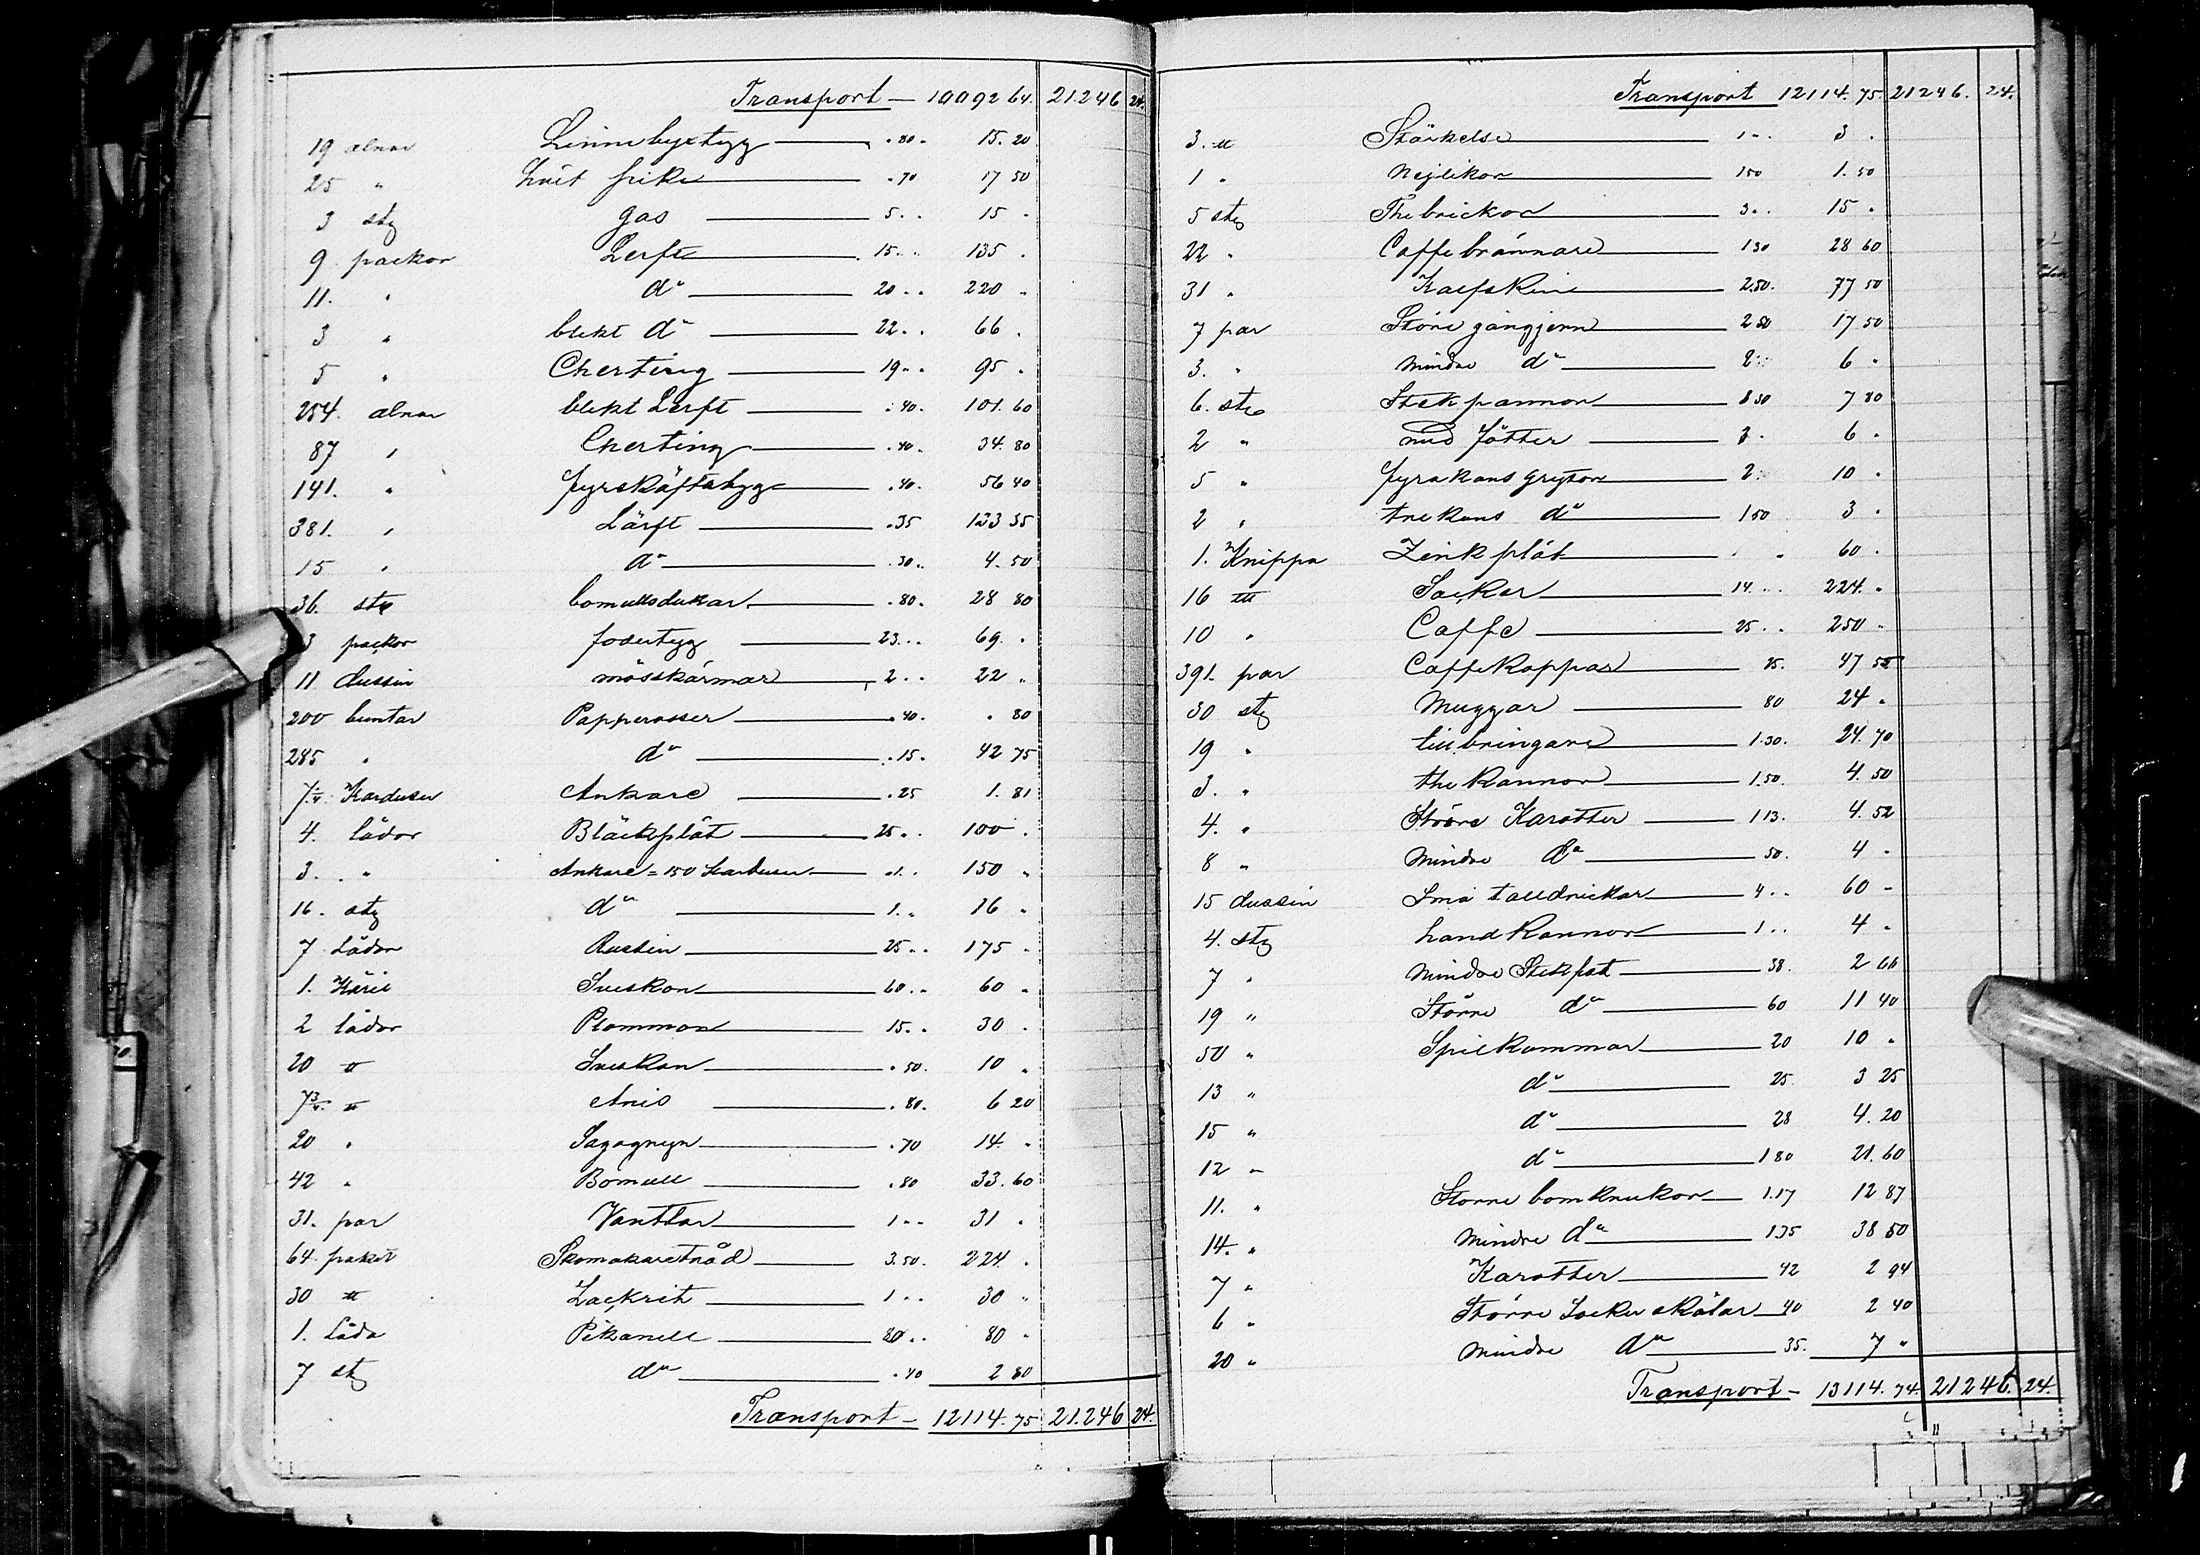 Transport — 10092 64. 21.246 24.
19 alnar Linnebyxtyg .80. 15. 20
25 " hvit frike .70 17 50
3 stg gas 5. . 15 .
9 packor Lerft 15. . 135 .
11. " do 20 . . 220 .
3 " blekt do 22. . 66 .
5 " Cherting 19. . 95 .
254. alnar blekt Lerft .40. 101. 60
87 " Cherting .40. 34. 80
141. " fyrskäftstyg .40. 56 40
381. " Lärft .35 133 35
15 " do .30.. 4. 50
36. stg bomullsdukar .80. 28 80
3 packor fodertyg 23. . 69. .
11 dussin mösskärmar 2. . 22 .
200 buntar Papperosser .40. . 80
285 " do .15. 42 75
7 1/4 Karduser Ankare .25 1. 81
4. lådor Bläckplåt 25. . 100 .
3. " Ankare = 150 Karduser .1. . 150 .
16. stg do 1. . 16 .
7 Lådor Russin 25. . 175 .
1. Käril Sviskon 60. . 60 .
2 lådor Plommon 15. . 30 .
20 ℔ Sviskon .50. 10 .
7 3/4. ℔ Anis .80. 6 20
20 " Sagogryn .70 14. .
42 " Bomull .80 33. 60
31. par Vanttar 1. . 31 .
64. paket Skomakaretråd 3.50. 224. .
30 ℔ Lackrit 1. . 30 .
1. Låda Pikanell 80. . 80 .
7 stg do .40 2 80
Transport — 12114. 75 21.246 24.
Transport 12114. 75. 21246. 24.
3. ℔ Stärkelse 1. . 3 .
1 " Nejlikor 150 1. 50
5 stg Thebrickor 3. . 15 .
22 " Caffebrännare 130 28 60
31 " Kalfskinn 2.50. 77 50
7 par Störe gångjern 2 50 17 50
3. " mindre do 2 6 .
6. stg Stekpannor 130 7 80
2 " med fötter 3. 6 .
5 " fyrakans grytor 2. 10 .
2 " trekans do 150 3 .
1. Knippa Zinkplåt . . 60 .
16 ℔ Socker 14. . . 224. .
10 " Caffe 25 . . 250 .
391. par Caffekoppar 25. 47 55
30 stg Muggar 80 24 .
19 " tillbringare 1.30. 24. 70
3. " thekannor 1.50. 4. 50
4. " Större Karotter 113. 4. 52
8 " Mindre do 50. 4 .
15 dussin Små talldrickar 4. . 60 -
4. stg handkannor 1. . 4 .
7 " mindre Stekfat 38. 2 66
19 " Större do 60 11 40
50 " Spilkummar 20 10 .
13 " do 25 3 25
15 " do 28 4. 20
12 " do 1 80 21. 60
11. " Större bomkrukor 1.17 12 87
14. " Mindre do 135 38 50
7 " Karotter 42 2 94
6 " Större Sockerskålar 40 2 40
20 " mindre do 35. 7 "
Transport — 13114. 74. 21246. 24.